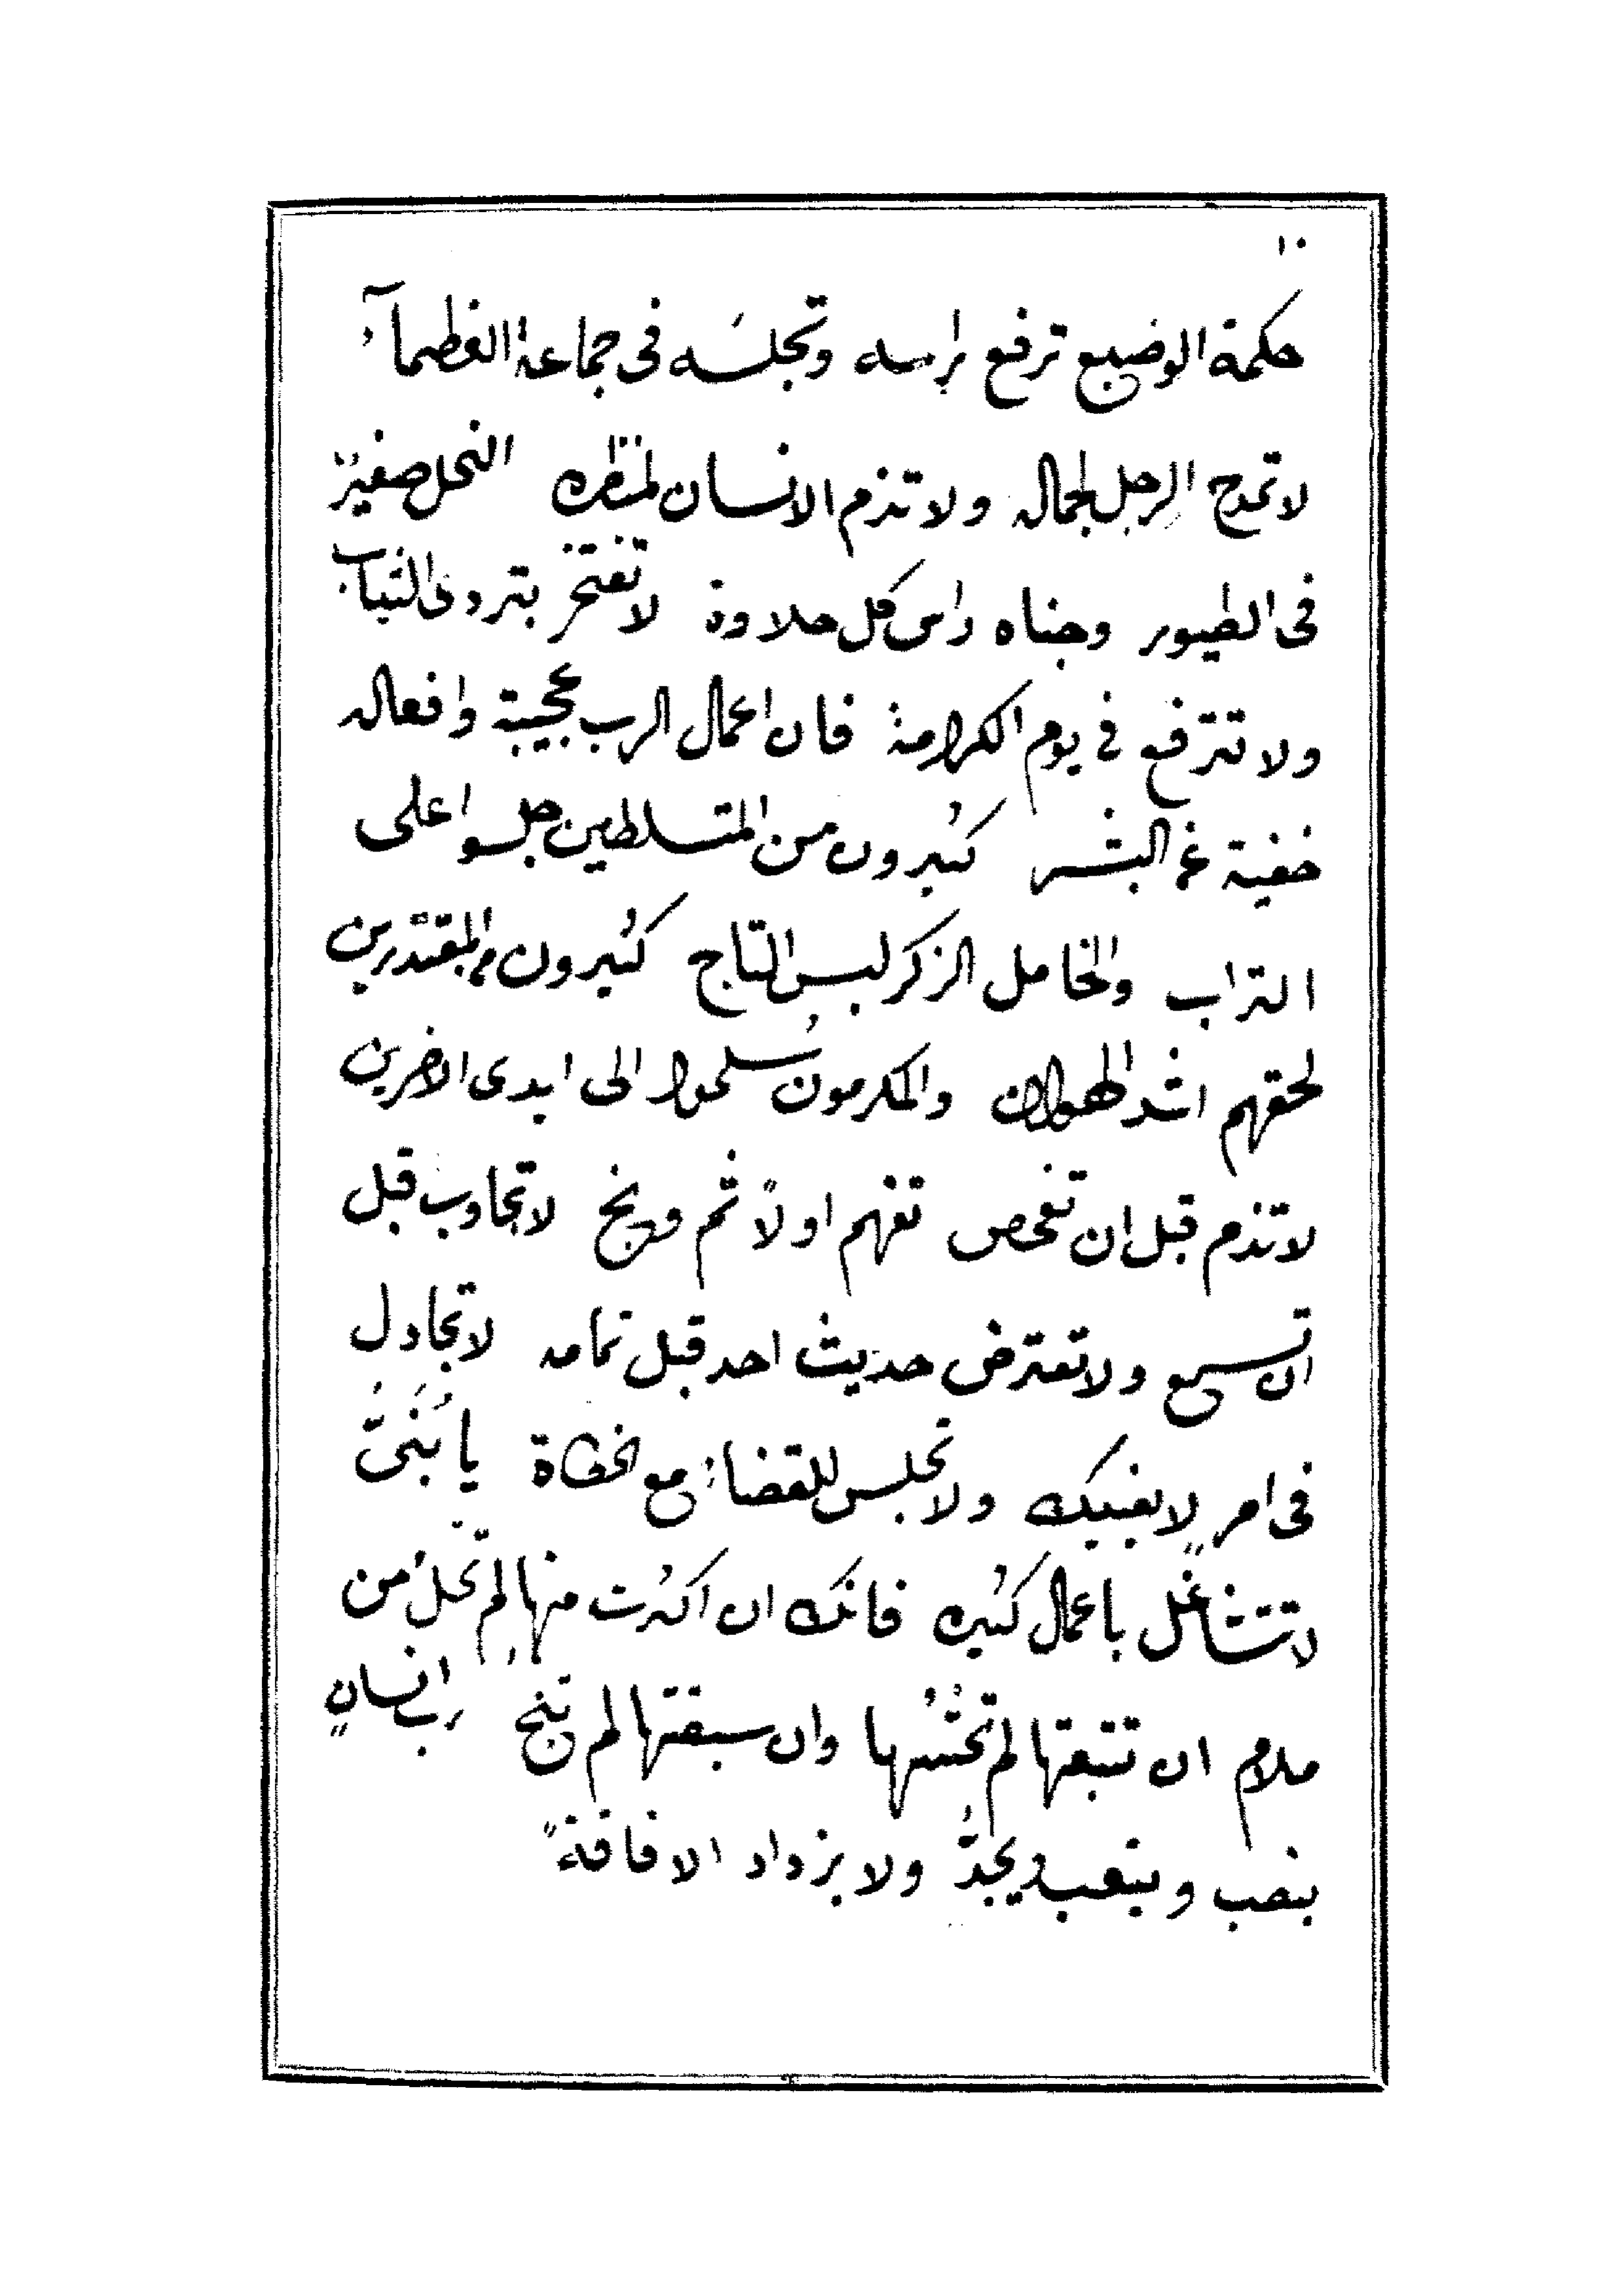 ١٠
حكمة الوضيع ترفع راسه وتجلسَه فى جماعة العظمآء
لا تمدح الرجل لجماله ولا تذم الانسان لمنظره النحل صغيرٌ
فى الطيور وجناه راس كل حلاوة لا تفتخر بتردى الثياب
ولا تترفع في يوم الكرامة فان اعمال الرب عجيبة وافعاله
خفية عن البشر كثيرون من المتسلطين جلسوا على
التراب والخامل الذكر لبس التاج كثيرون من المقتدرين
لحقهم اشد الهوان والمكرمون سُلموا الى ايدى الاخرين
لا تذم قبل ان تفحص تفهم اولاً ثم وبخ لا تجاوب قبل
ان تسمع ولا تعترض حديث احد قبل تمامه لا تجادل
فى امر لا يعنيك ولا تجلس للقضاء مع الخطاة يا بُنَىَّ
لا تتشاغل باعمال كثيره فانك ان اكثرت منها لم تخلُ من
ملام ان تتبعتها لم تحُشْها وان سبقتها لم تنج رب انسانٍ
ينصب ويتعب ويجدُّ ولا يزداد الا فاقةً